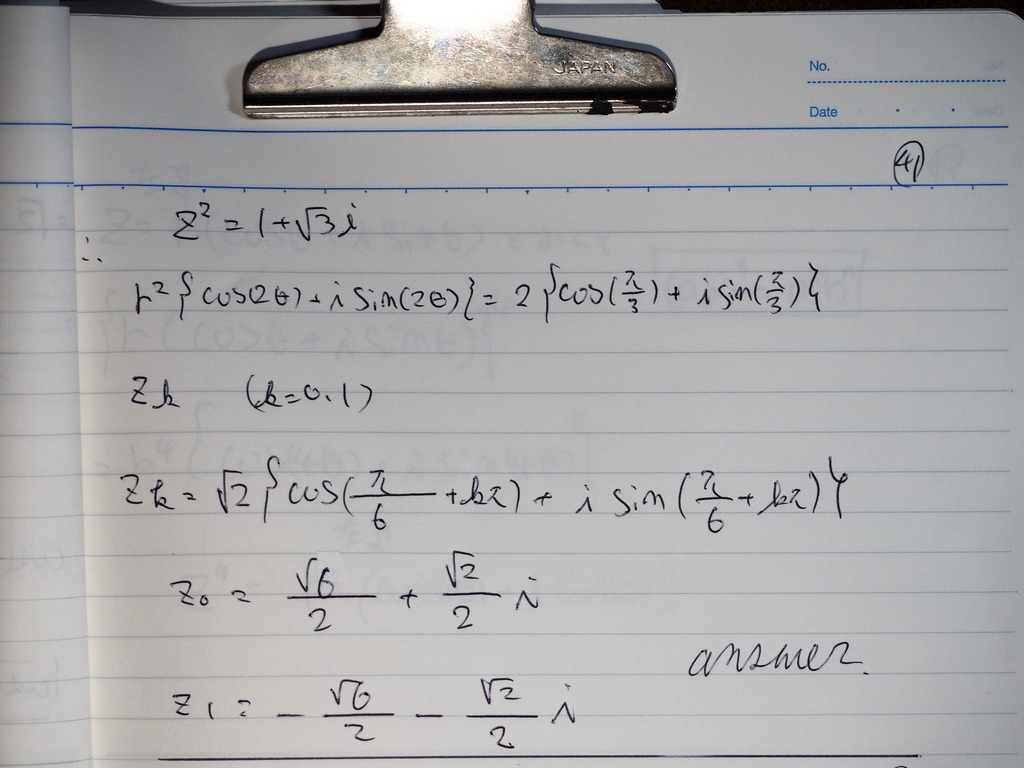 JAPAN
No.
Date
④①
z² = 1+√3i
∴
r²{cos(2θ)+i sin(2θ)} = 2{cos(π/3)+ i sin(π/3)}
Zk (k=0.1)
Zk = √2{cos(π/6 +kπ) + i sin(π/6 + kπ)}
Z₀ = √6/2 + √2/2 i
answer.
Z₁ = - √6/2 - √2/2 i